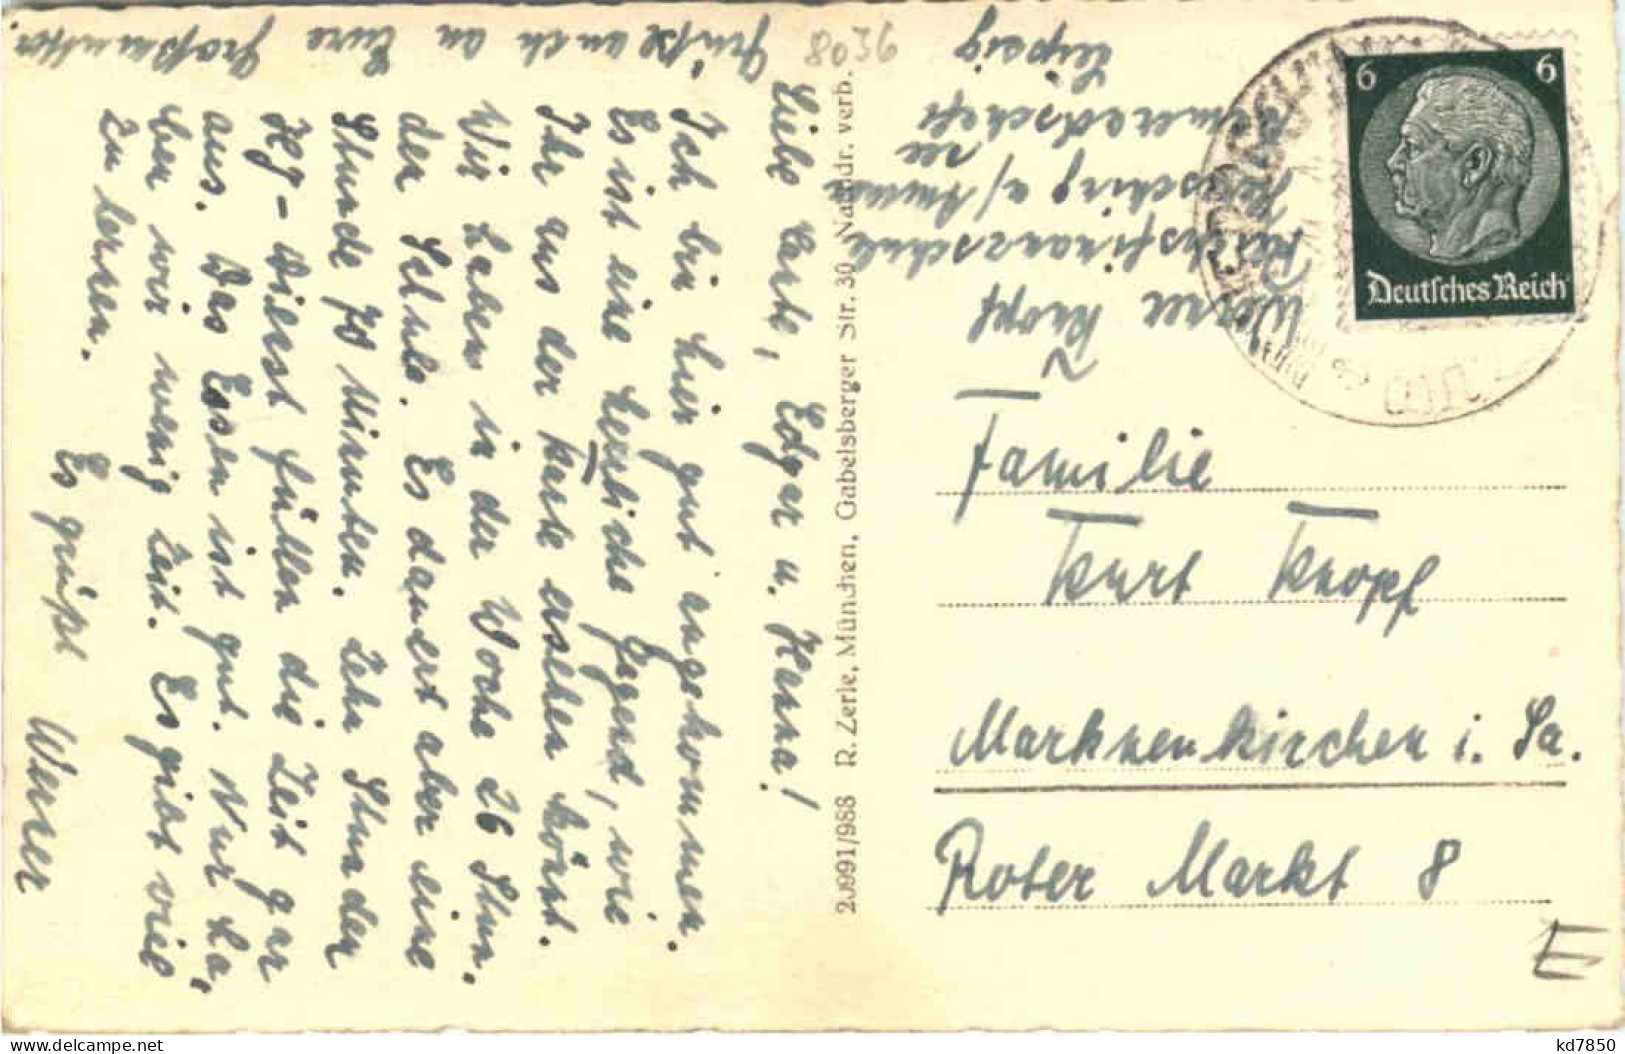 Liebe Tante, Edgar u. Hanna!
Ich bin hier gut angekommen.
Es ist eine herrliche Gegend, wie
Ihr aus der Karte ersehen könnt.
Wir haben in der Woche 26 Stun-
den Schule. Es dauert aber eine
Stunde 70 Minuten. Zehn Stunden
HJ-Dienst füllen die Zeit gar
aus. Das Essen ist gut. Nur ha-
ben wir wenig Zeit. Es gibt viel
zu lernen.
Es grüßt
Werner
Grüße auch an Eure Großmutter.
8036
20991/988 R. Zerle, München, Gabelsberger Str. 30, Nachdr. verb.
Werner Knopf
Reichsfinanzschule
Herrsching a/Ammer
see
Kameradschaft
Leipzig
6 6
Deutsches Reich
Familie
Kurt Knopf
Markneukirchen i. Sa.
Roter Markt 8
E
kd7850